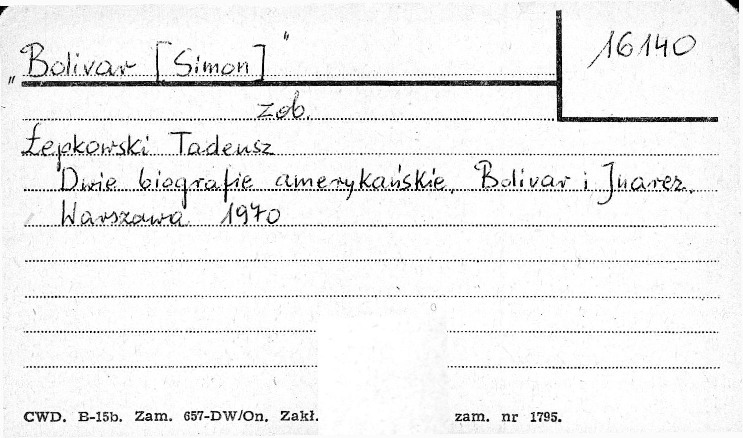 „Bolivar [Simon]"
16140
zob.
Łepkowski Tadeusz
Dwie biografie amerykańskie. Bolivar i Juarez.
Warszawa 1970
CWD. B-15b. Zam. 657-DW/On. Zakł. zam. nr 1795.